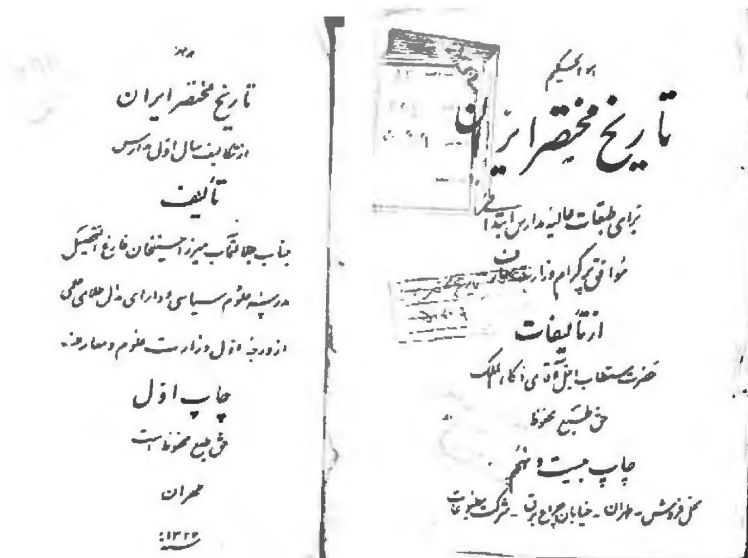 هوالحکیم
تاریخ مختصر ایران
برای طبقات عالیه مدارس ابتدا
موافق پرگرام وزارت
از تألیفات
حضرت مستطاب اجل آقای ذکاءالملک
حق طبع محفوظ
چاپ بیست و نهم
محل فروش - طهران - خیابان چراغ برق - شرکت مطبوعات
تاریخ مختصر ایران
از تکالیف سال اول مدارس
تألیف
جناب جلالتمآب میرزا حسینخان فارغ التحصیل
مدرسه علوم سیاسی و دارای مدال طلای علمی
از درجه اول وزارت علوم و معارف
چاپ اول
حق طبع محفوظ است
طهران